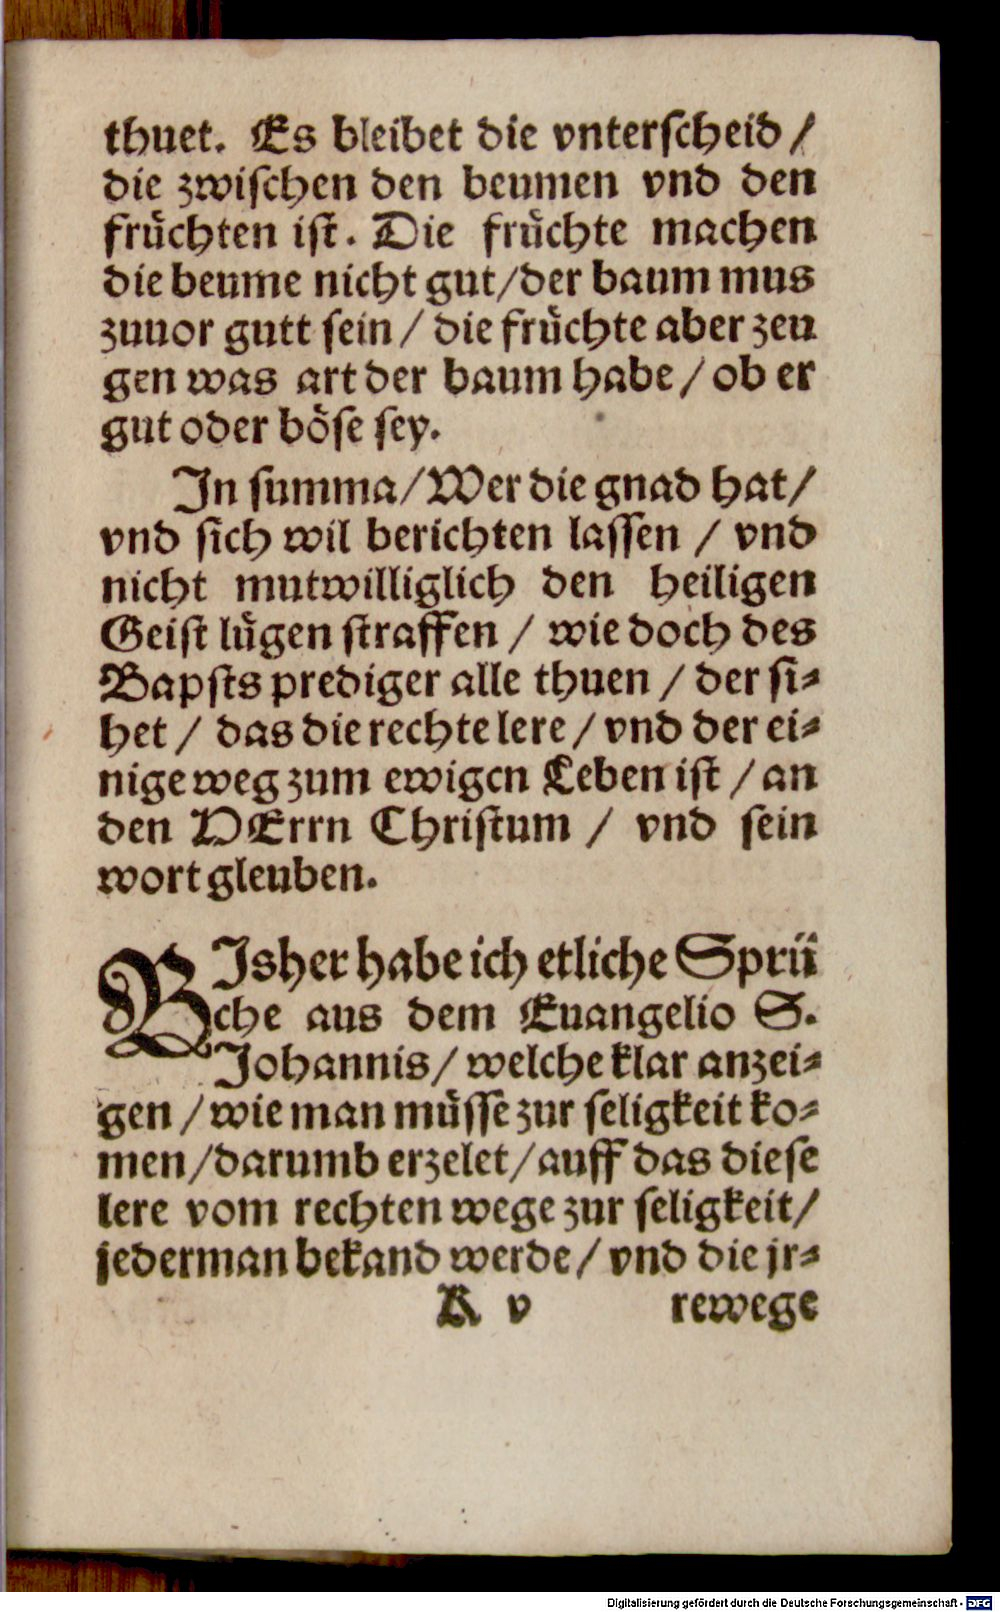 thuet. Es bleibet die vnterscheid /
die zwischen den beumen vnd den
fruͤchten ist. Die fruͤchte machen
die beume nicht gut/der baum mus
zuuor gutt sein / die fruͤchte aber zeu
gen was art der baum habe / ob er
gut oder boͤse sey.
In summa/Wer die gnad hat/
vnd sich wil berichten lassen / vnd
nicht mutwilliglich den heiligen
Geist luͤgen straffen / wie doch des
Bapsts prediger alle thuen / der si⸗
het / das die rechte lere / vnd der ei⸗
nige weg zum ewigen Leben ist / an
den HErrn Christum / vnd sein
wort gleuben.
BIsher habe ich etliche Spruͤ
che aus dem Euangelio S.
Johannis/ welche klar anzei⸗
gen / wie man muͤsse zur seligkeit ko⸗
men/darumb erzelet/auff das diese
lere vom rechten wege zur seligkeit/
jederman bekand werde / vnd die jr⸗
K v rewege
Digitalisierung gefördert durch die Deutsche Forschungsgemeinschaft - DFG